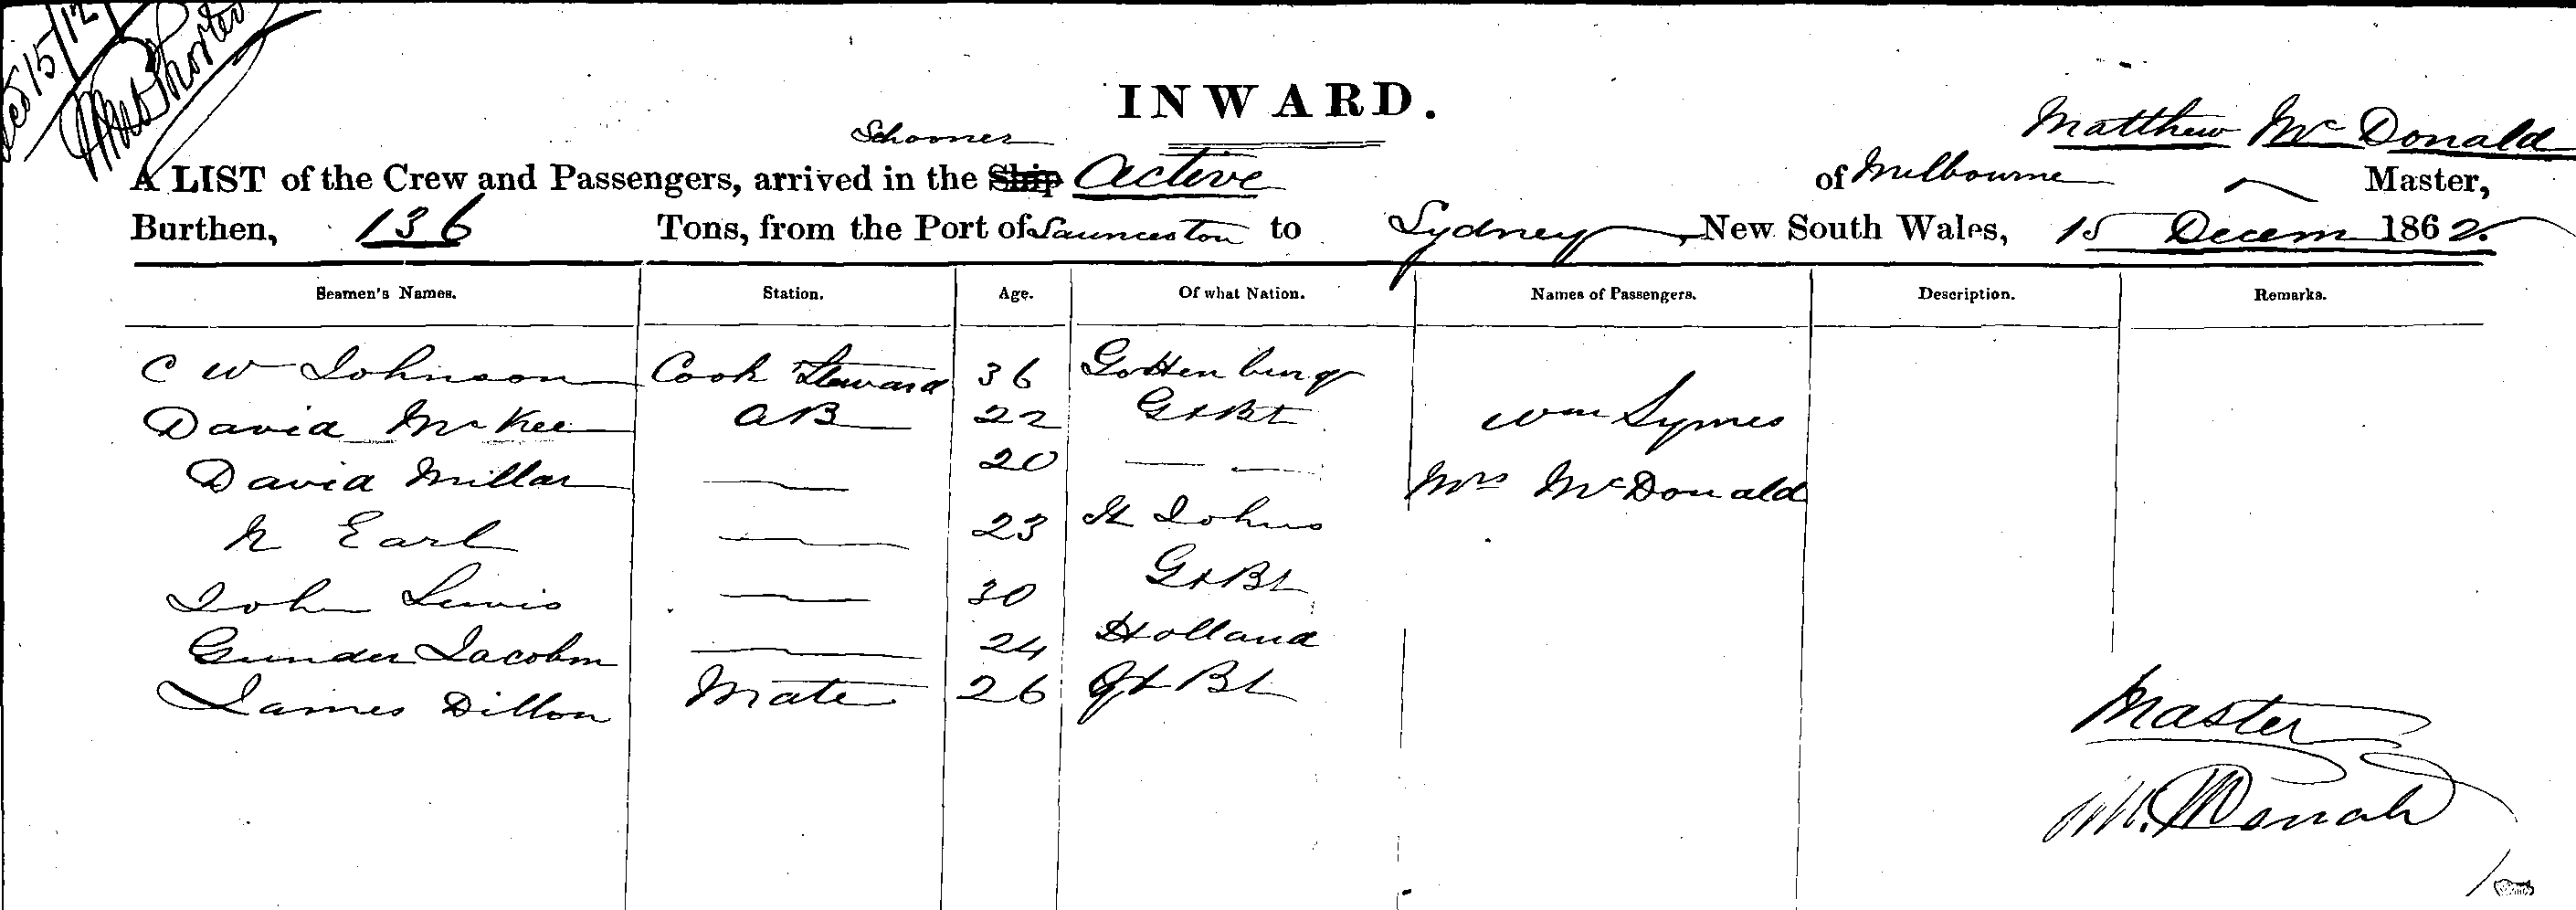 15/12
INWARD.
Matthew McDonald
Schooner
A LIST of the Crew and Passengers, arrived in the Ship Active of Melbourne Master,
Burthen, 136 Tons, from the Port of Launceston to Sydney, New South Wales, 15 Decem 1862.
Seamen's Names. Station. Age. Of what Nation. Names of Passengers. Description. Remarks.
C W Johnson Cook Steward 36 Gottenburg
David McKee AB 22 Gt Bt Wm Symes
David Millar — 20 — — Mrs McDonald
Earl — 23 St Johns
John Lewis — 30 Gt Bt
Gunder — 24 Holland
James Dillon Mate 26 Gt Bt
Master